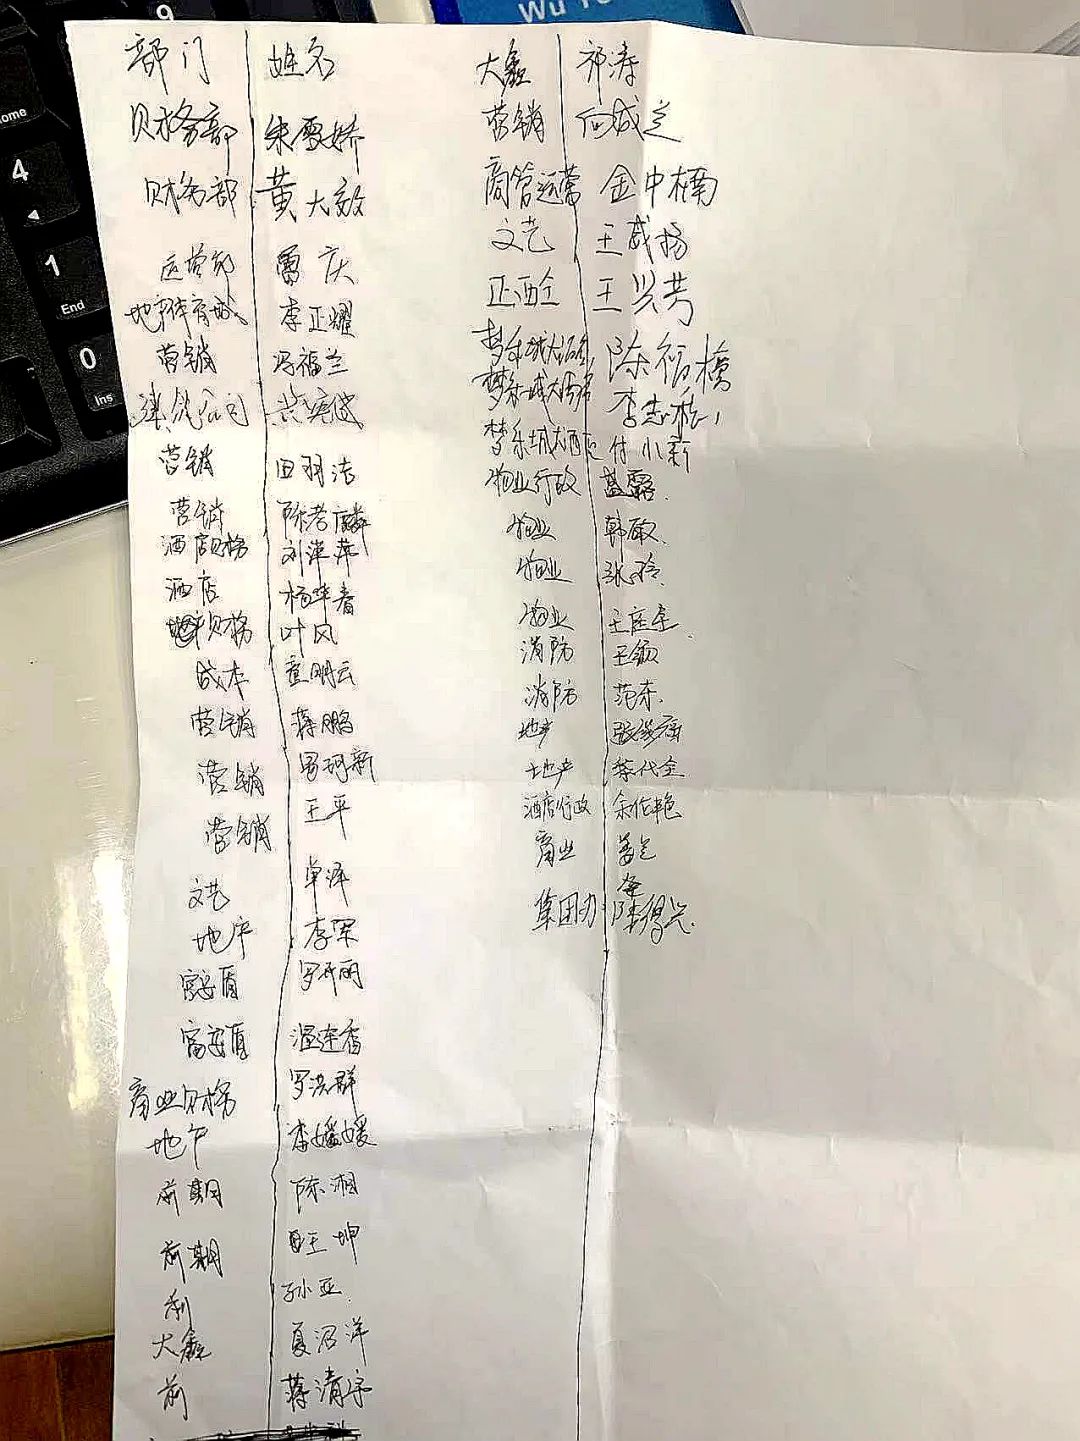 9
Home
4
1
End
0
Ins
Wu
部门 姓名
财务部 朱雪娇
财务部 黄大效
运营部 雷庆
地产体育城 李正耀
营销 冯福兰
建筑公司
营销 田羽洁
营销 陈考麟
酒店财务 刘泽萍
酒店 杨华春
地产财务 叶风
成本 童明云
营销 蒋鹏
营销 罗珂新
营销 王平
文艺 卓泽
地产 李军
富安盾 罗开丽
富安盾 温连香
商业财务 罗洪群
地产 李媛媛
前期 陈湘
前期 王坤
孙亚
大鑫 夏沼洋
前 蒋清宇
大鑫 祁涛
营销 向城芝
商管运营 金中楠
文艺 王威扬
正西全 王兴芳
梦乐城大酒店 陈裕横
梦乐城大酒店 李志松
梦乐城大酒店 付小新
物业行政 蓝露
物业 韩敏
物业 张玲
物业 王庄全
消防 王敏
消防 范东
地产
地产 李代全
酒店行政 余伦艳
商业 姜芝
集团办 陈得兴